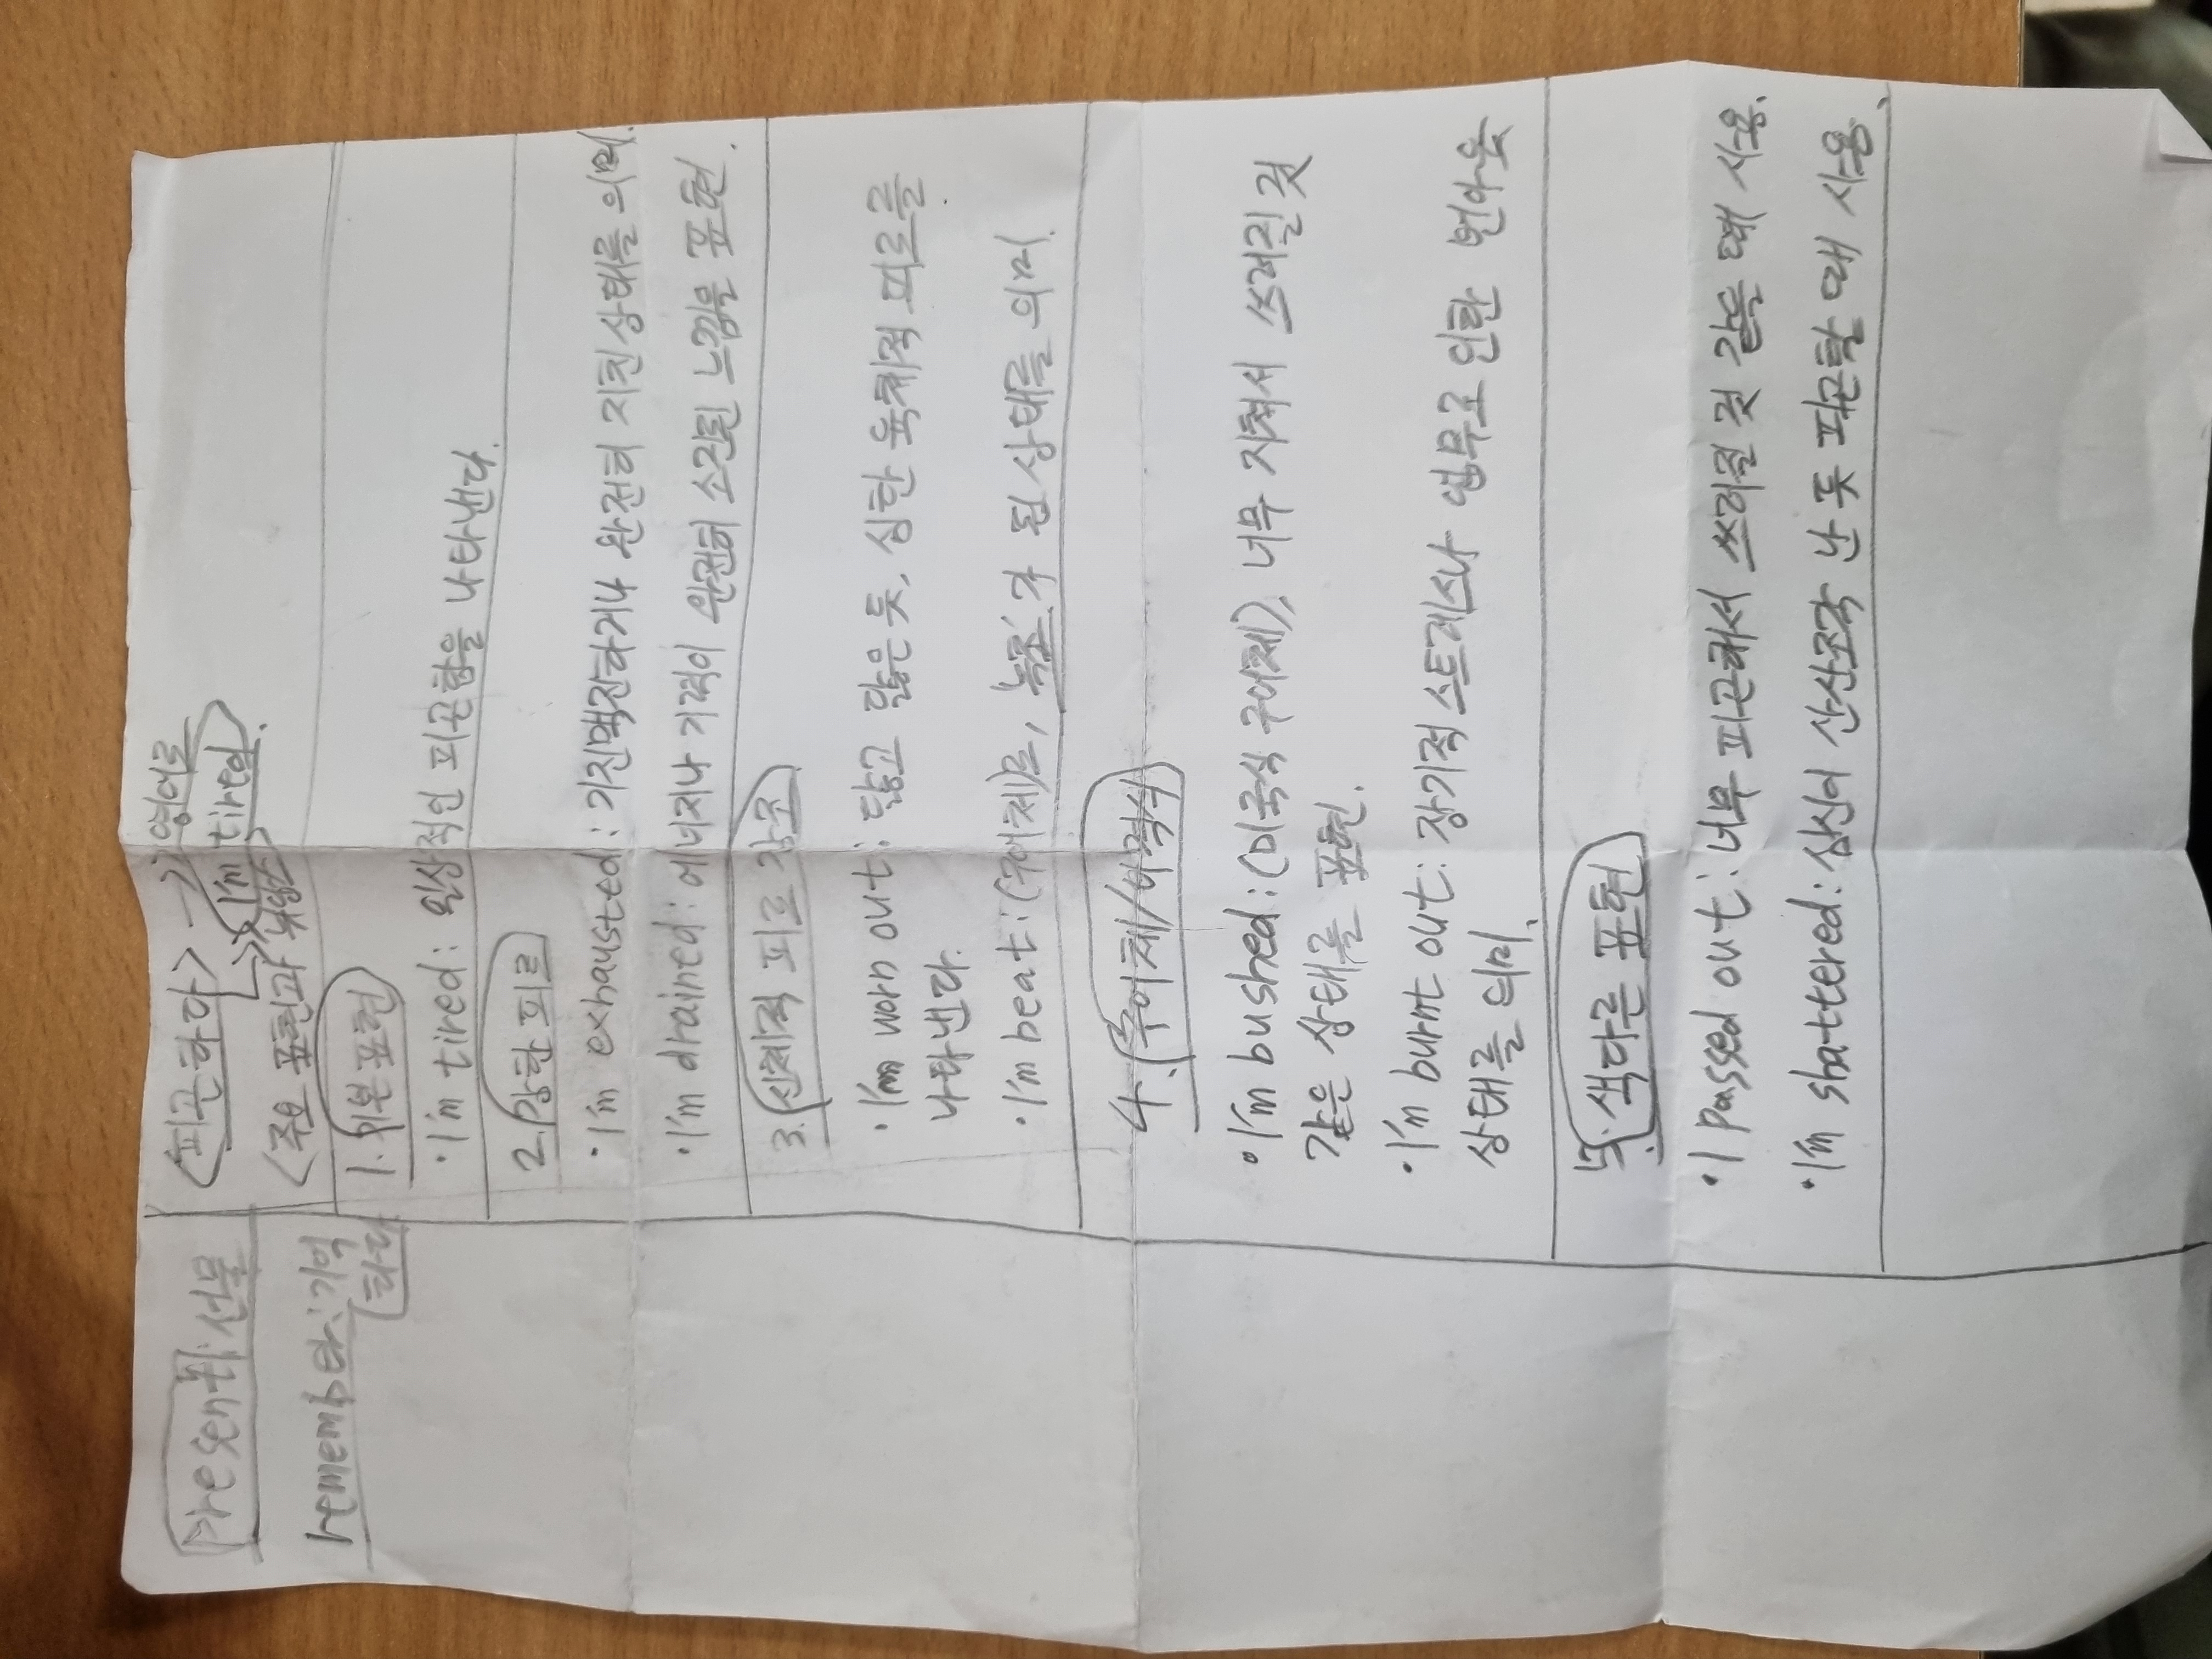 present: 선물
remember: 기억
하다
<피곤하다> -> 영어로
I'm tired.
<주요 표현과 뉘앙스>
1. 기본 표현
• I'm tired: 일상적인 피곤함을 나타낸다.
2. 강한 피로
• I'm exhausted: 기진맥진하거나 완전히 지친 상태를 의미.
• I'm drained: 에너지나 기력이 완전히 소진된 느낌을 표현.
3. 신체적 피로 강조
• I'm worn out: 닳고 닳은 듯, 심한 육체적 피로를
나타낸다.
• I'm beat: (구어체)로, 녹초가 된 상태를 의미.
4. 구어체/미국식
• I'm bushed: (미국식 구어체), 너무 지쳐서 쓰러질 것
같은 상태를 표현.
• I'm burnt out: 장기적 스트레스나 업무로 인한 번아웃
상태를 의미.
5. 색다른 표현
• I passed out: 너무 피곤해서 쓰러질 것 같을 때 사용.
• I'm shattered: 심신이 산산조각 난 듯 피곤할 때 사용.